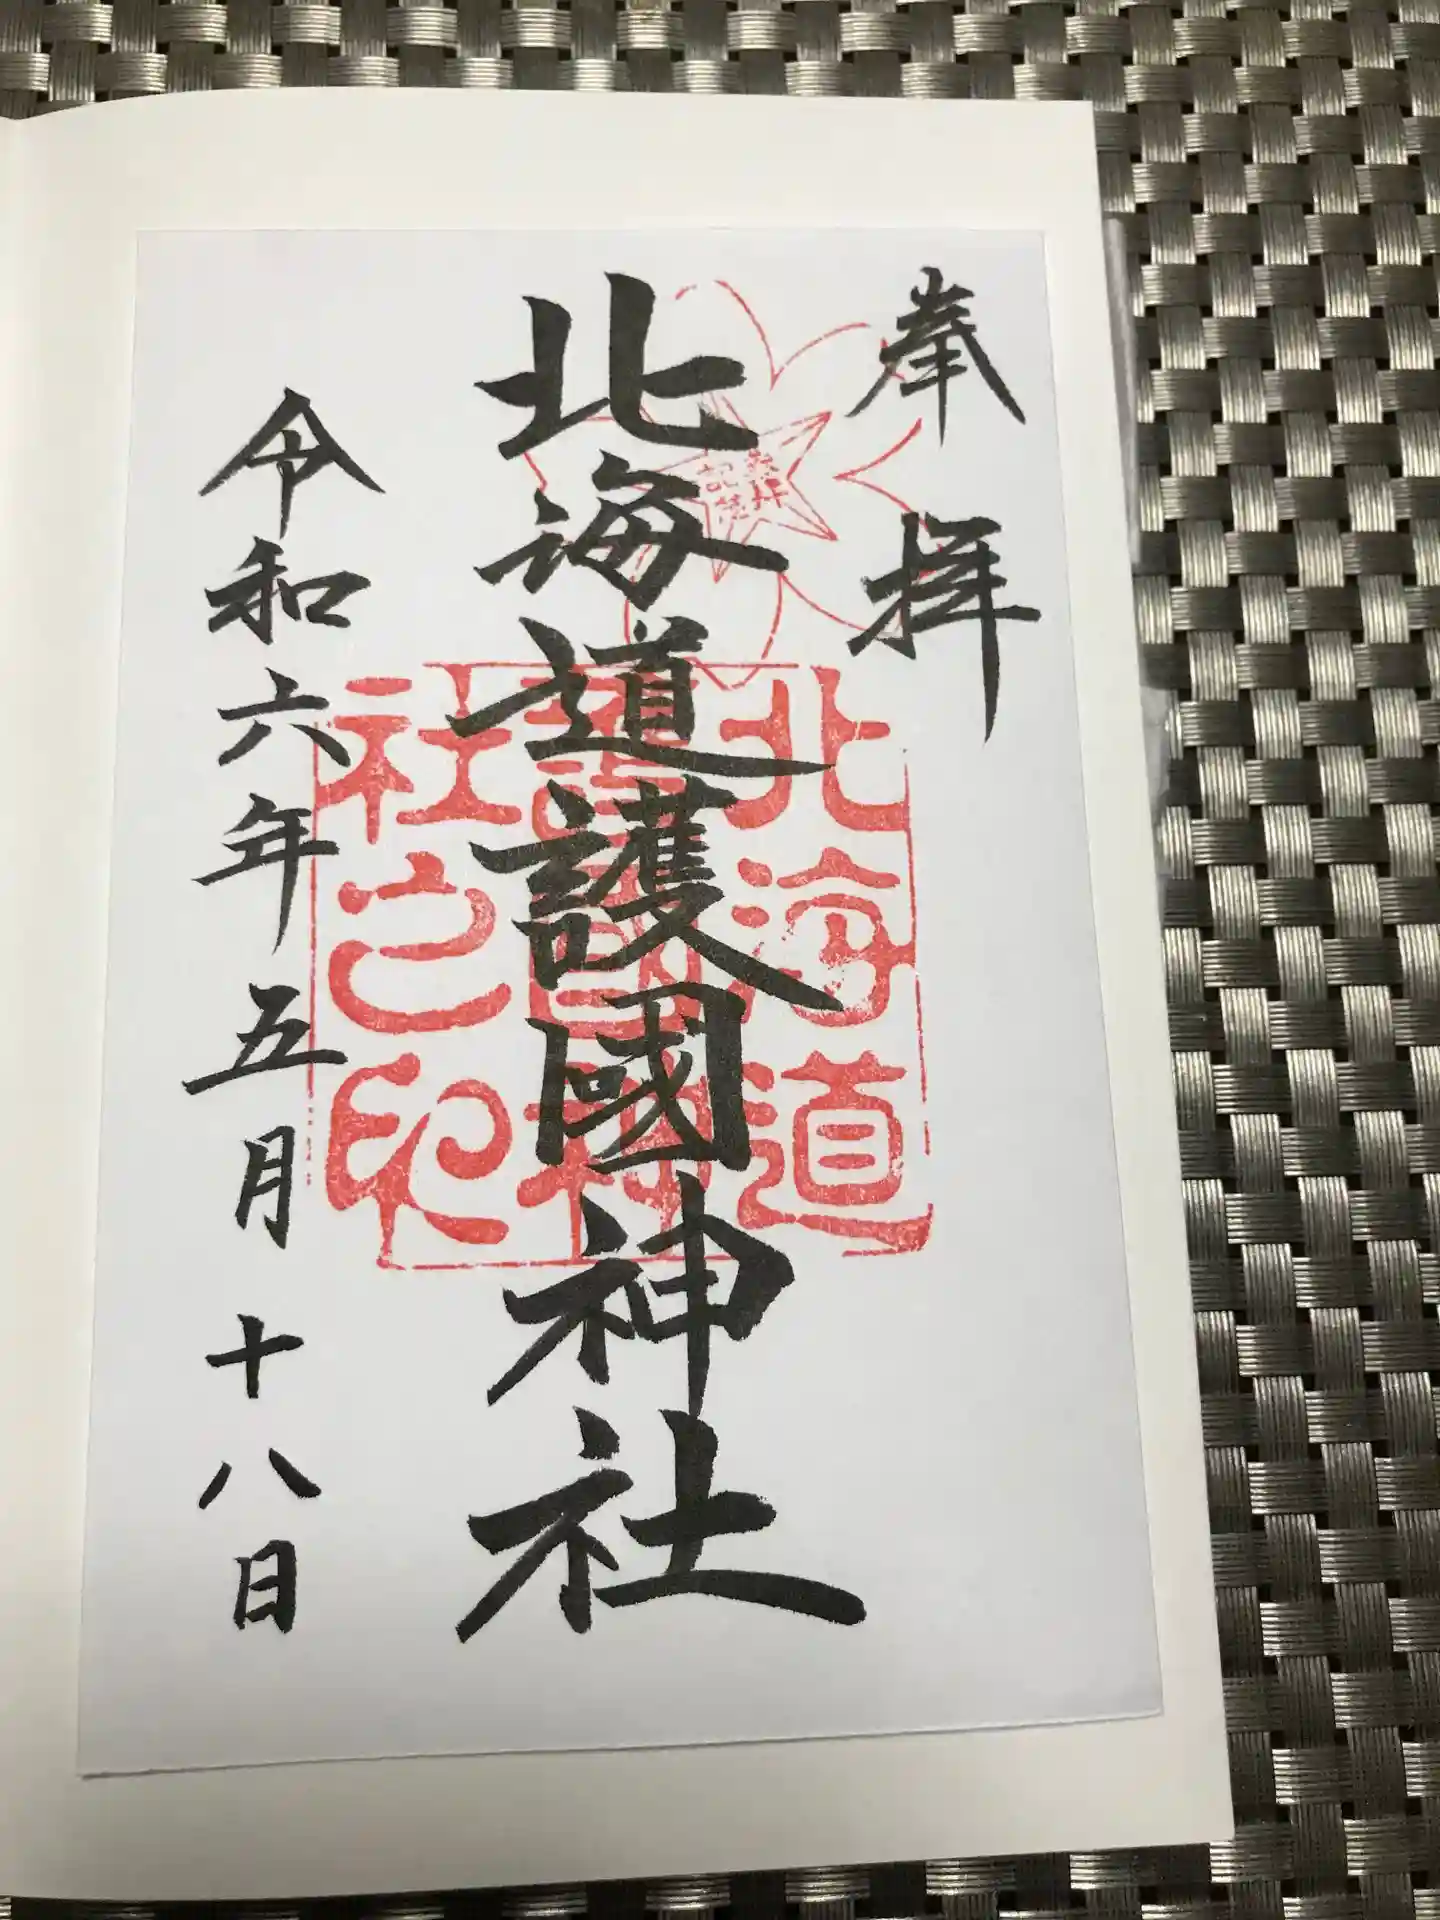 奉拝
北海道護國神社
令和六年五月十八日
北海道
護國神
社之印
参拝
記念